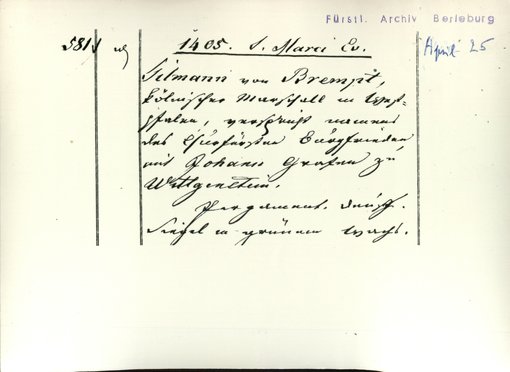 Fürstl. Archiv Berleburg
581
1405. S. Marci Ev.
April 25
Tilmann von Brempt,
kölnischer Marschall in West-
phalen, verspricht namens
des Churfürsten Burgfrieden
mit Johann Grafen zu
Wittgenstein.
Pergament. Deutsch.
Siegel in grünem Wachs.